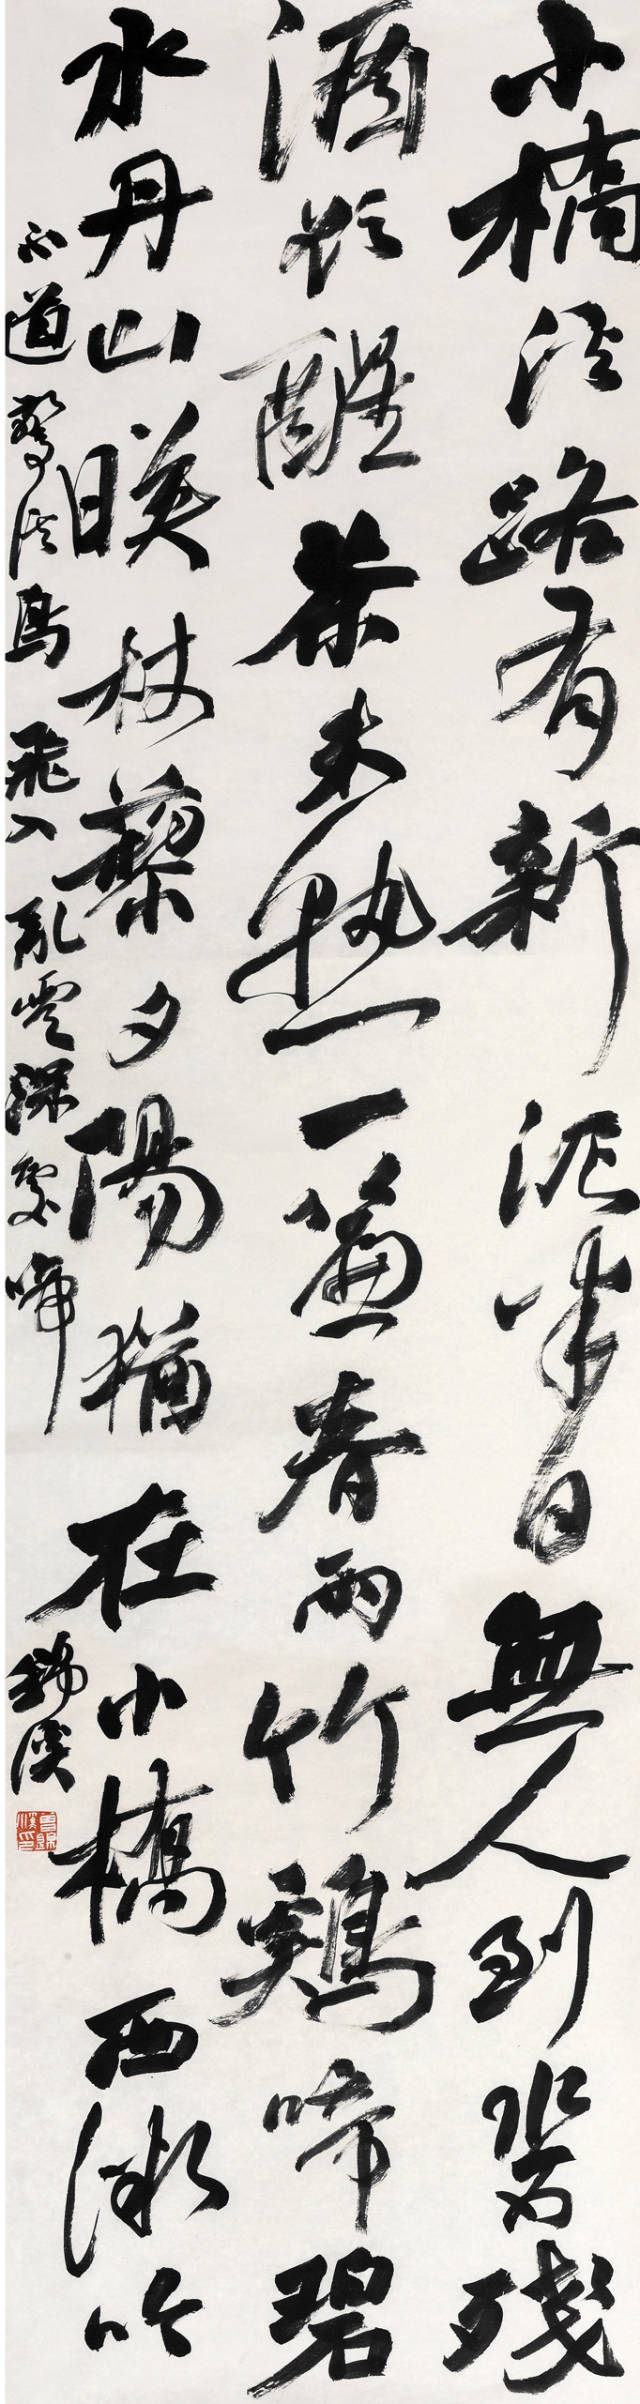 小橋溪路有新泥半日無人到水西殘
酒欲醒茶未熟一簾春雨竹鷄啼碧
水丹山映杖藜夕陽猶在小橋西微吟
不道驚溪鳥飛入亂雲深處啼 錦溪